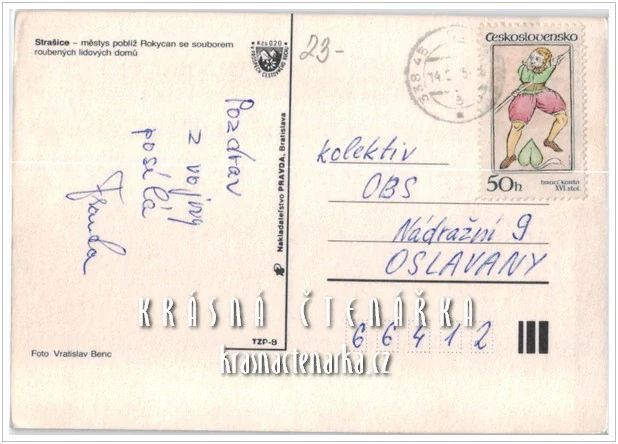 Strašice – městys poblíž Rokycan se souborem
roubených lidových domů
Kčs 020
23-
Československo
50h
hrací karta
XVI. stol.
338 45
14.
Pozdrav
z vojny
posílá
Franta
Nakladatelství PRAVDA, Bratislava
kolektiv
OBS
Nádražní 9
OSLAVANY
KRÁSNÁ ČTENÁŘKA
TZP-B
66412
krasnactenarka.cz
Foto Vratislav Benc